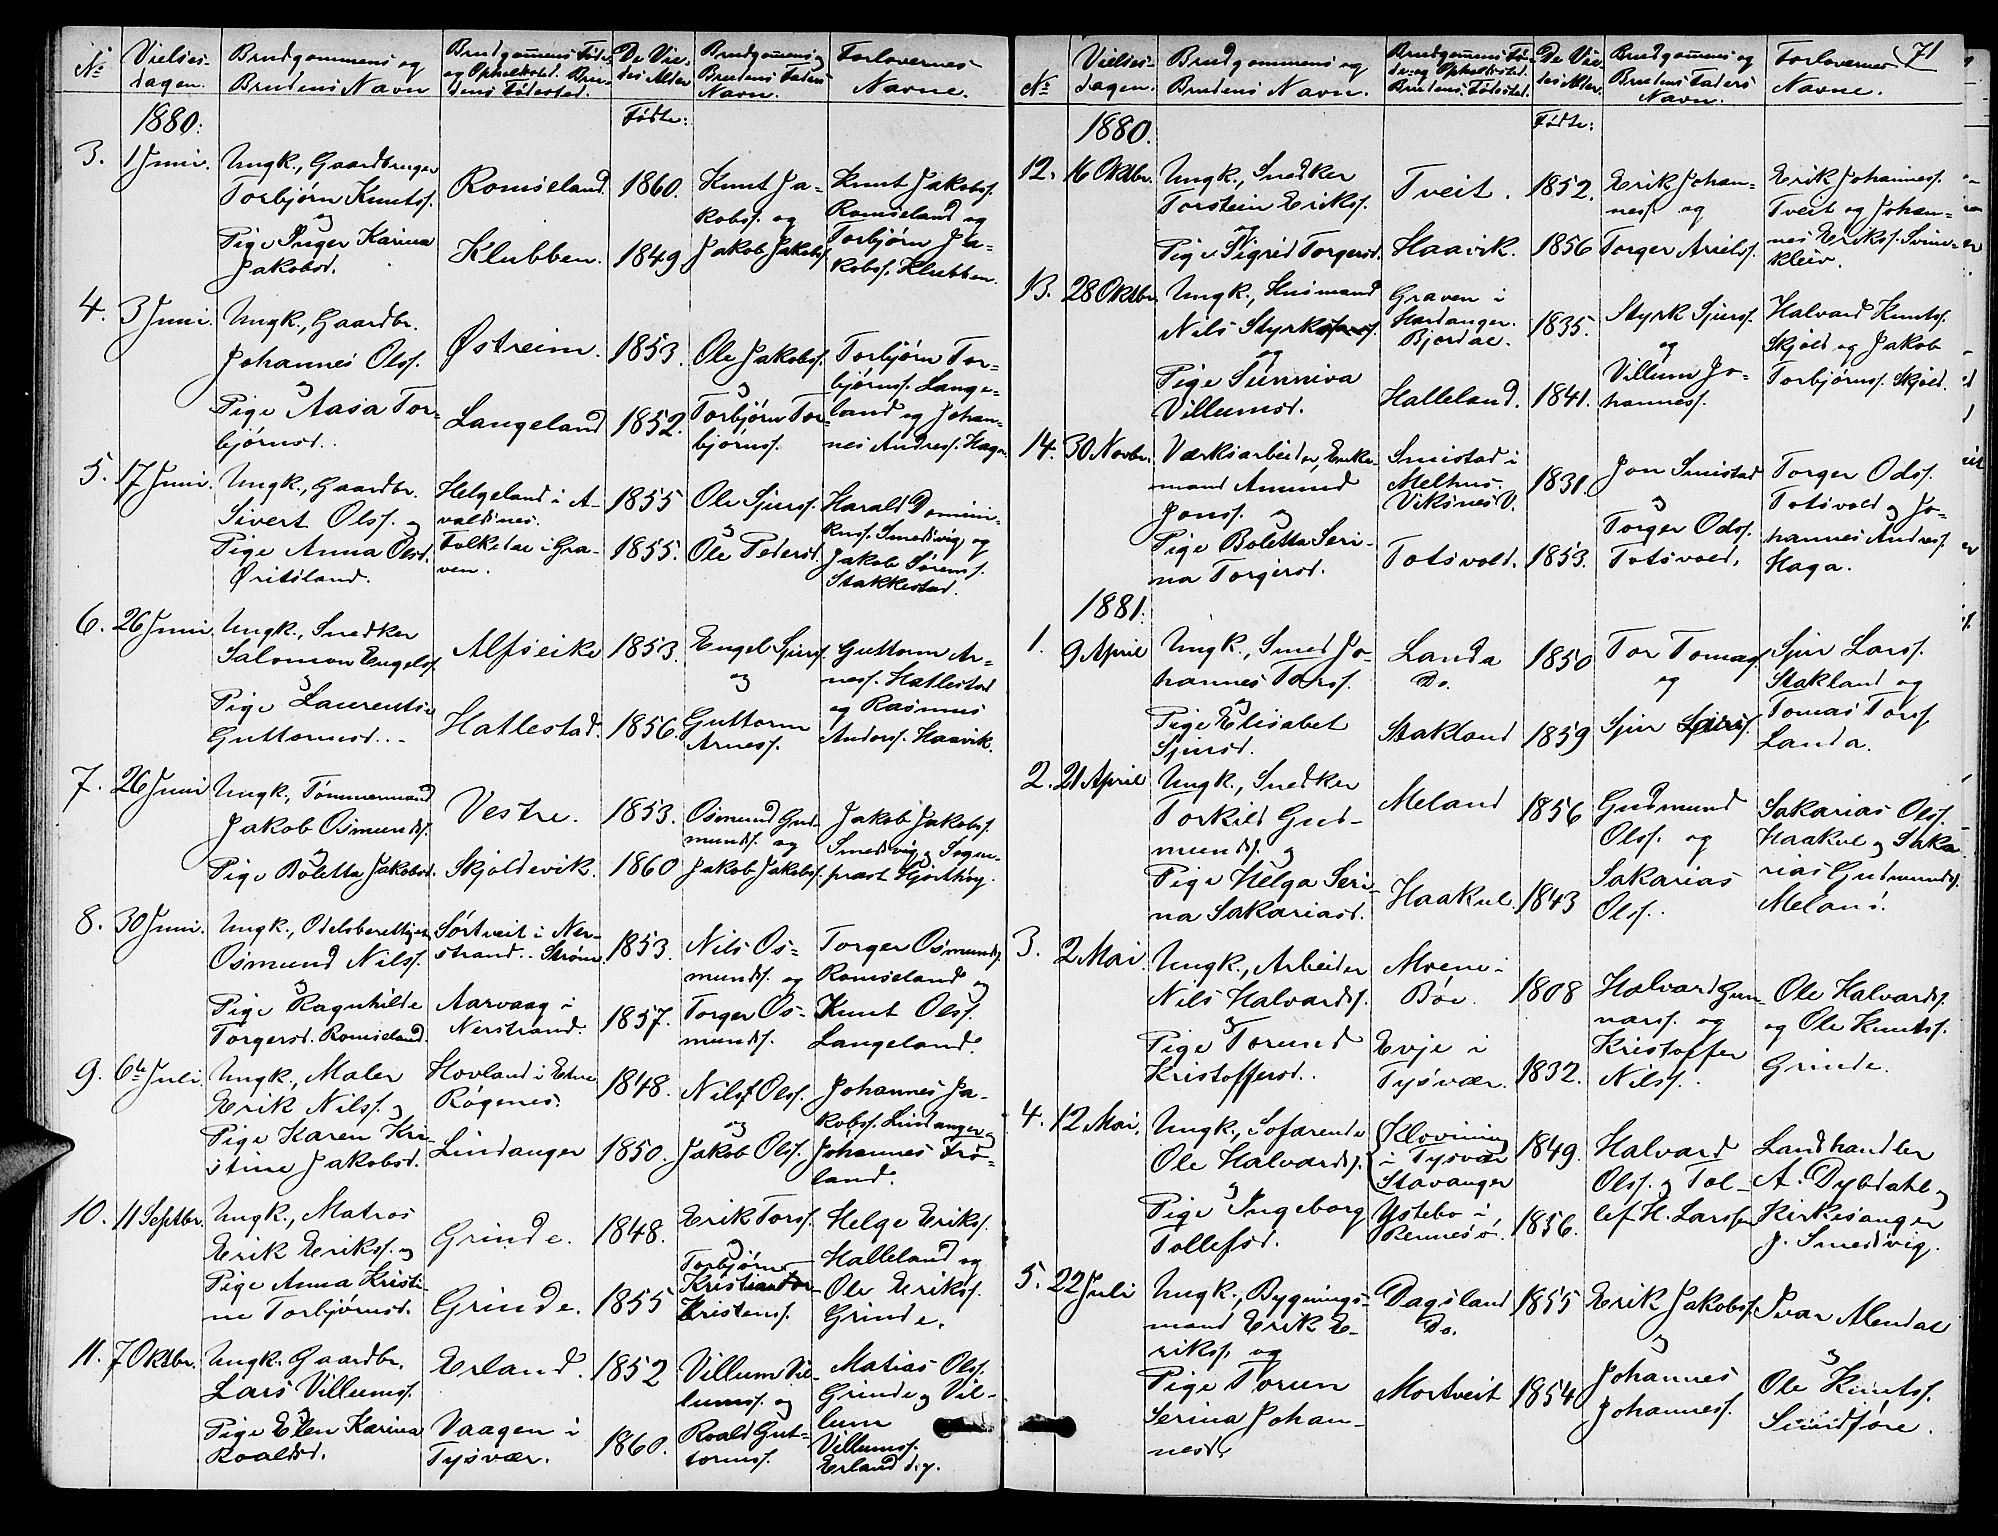 71
No
Vielses-
dagen.
Brudgommens og
Brudens Navn
Brudgommens Føde-
og Opholdssted. Bru-
dens Fødested.
De Vie-
des Alder
Brudgommens og
Brudens Faders
Navn.
Forlovernes
Navne.
1880.
Fødte:
3.
1 Juni.
Ungk., Gaardbruger
Torbjørn Knutss.
og
Pige Inger Karina
Jakobsd.
Romseland.
Klubben.
1860.
1849
Knut Ja-
kobss. og
Jakob Jakobss.
Knut Jakobss.
Romseland og
Torbjørn Ja-
kobss. Klubben.
4.
3 Juni.
Ungk., Gaardbr.
Johannes Olss.
og
Pige Aasa Tor-
bjørnsd.
Østreim.
Langeland
1853.
1852.
Ole Jakobss.
og
Torbjørn Tor-
bjørnss.
Torbjørn Tor-
bjørnss. Lange-
land og Johan-
nes Andress. Haga.
5.
17 Juni.
Ungk., Gaardbr.
Sivert Olss. og
Pige Anna Olsd.
Øritsland.
Helgeland i A-
valdsnes.
Folkedal i Gra-
ven.
1855
1855.
Ole Sjurss.
og
Ole Pedersd
Harald Domini-
kuss. Smedvig og
Jakob Sørenss.
Stakkestad.
6.
26 Juni.
Ungk., Snedker
Salomon Engelss.
og
Pige Laurentse
Guttormsd.
Alfseike
Hatlestad.
1853.
1856.
Engel Sjurss.
og
Guttorm
Arness.
Guttorm Ar-
ness. Hatlestad
og Rasmus
Anderss. Haavik.
7.
26 Juni
Ungk., Tømmermand
Jakob Osmundss.
og
Pige Boletta Jakobsd.
Vestre.
Skjoldevik.
1853.
1860
Osmund Gud-
mundss. og
Jakob Jakobss.
Jakob Jakobss.
Smedvig og Sogne-
præst Hjorthøy.
8.
30 Juni.
Ungk., Odelsberettiget
Osmund Nilss.
og
Pige Ragnhilde
Torgersd. Romseland.
Sørtveit i Ner-
strand. Strøm.
Aarvaag i
Nerstrand.
1853.
1857.
Nils Os-
mundss. og
Torger Os-
mundss.
Torger Osmundss.
Romseland og
Knut Olss.
Langeland.
9.
6te Juli
Ungk., Maler
Erik Nilss. og
Pige Karen Kri-
stine Jakobsd.
Hovland i Etne
Røgenes.
Lindanger
1848.
1850.
Nils Olss.
og
Jakob Olss.
Johannes Ja-
kobss. Lindanger og
Johannes Frø-
land.
10.
11 Septbr.
Ungk., Matros
Erik Erikss. og
Pige Anna Kristi-
ne Torbjørnsd.
Grinde.
Grinde.
1848.
1855
Erik Torss.
Torbjørn
Kristens.
Helge Erikss.
Halleland og
Ole Erikss.
Grinde.
11.
7 Oktbr.
Ungk. Gaardbr.
Lars Villumss.
og
Pige Elen Karina
Roaldsd.
Erland.
Vaagen i
Tysvær.
1852
1860.
Villum Vil-
lumss. og
Roald Gut-
tormss.
Matias Olss.
Grinde og Vil-
lum
Villumss.
Erland d.y.
No
Vielses-
dagen.
Brudgommens og
Brudens Navn.
Brudgommens Fø-
de- og Opholdssted.
Brudens Fødested.
De Vie-
des Alder.
Brudgommens og
Brudens Faders
Navn.
Forlovernes
Navne.
1880.
Fødte:
12.
16 Oktbr.
Ungk., Snedker
Torstein Erikss.
og
Pige Sigrid Torgersd.
Tveit.
Haavik.
1852.
1856
Erik Johan-
ness. og
Torger Arielss.
Erik Johanness.
Tveit og Johan-
nes Erikss. Svine-
kleiv.
13.
28 Oktbr.
Ungk., Husmand
Nils Styrkss.
og
Pige Sunniva
Villumsd.
Graven i
Hardanger.
Bjordal.
Halleland.
1835.
1841.
Styrk Sjurss.
og
Villum Jo-
hanness.
Halvard Knutss.
Skjold og Jakob
Torbjørnss. Skjold.
14.
30 Novbr.
Værksarbeider, Enke-
mand Amund
Jonss. og
Pige Boletta Seri-
na Torgersd.
Smistad i
Melhus.
Viksnes V.
Totsvold.
1831.
1853.
Jon Smistad
og
Torger Odss.
Totsvold,
Torger Odss.
Totsvold og Jo-
hannes Andress.
Haga.
1881.
1.
9 April
Ungk., Smed Jo-
hannes Torss.
og
Pige Elisabet
Sjursd.
Landa
Do.
Stakland
1850
1859
Tor Tomass.
og
Sjur Larss.
Sjur Larss.
Stakland og
Tomas Torss.
Landa.
2.
21 April
Ungk., Snedker
Torkild Gud-
mundss. og
Pige Helga Seri-
na Sakariasd.
Meland
Haakul.
1856
1843
Gudmund
Olss. og
Sakarias
Olss.
Sakarias Olss.
Haakul og Saka-
rias Gudmundss.
Meland.
3.
2 Mai.
Ungk., Arbeider
Nils Halvardss.
og
Pige Torund
Kristoffersd.
Moene i
Bø.
Evje i
Tysvær.
1808
1832.
Halvard Gun-
narss. og
Kristoffer
Nilss.
Ole Halvardss.
og Ole Knutss.
Grinde.
4.
12 Mai.
Ungk., Sofarende
Ole Halvardss.
og
Pige Ingeborg
Tollefsd.
Klovning
i Tysvær
Stavanger
Ystebø i
Rennesø.
1849.
1856.
Halvard
Olss. og Tol-
lef H. Larssen
Landhandler
A. Dybdahl og
Kirkesanger
J. Smedvig.
5.
22 Juli
Ungk., Bygnings-
mand Erik E-
rikss. og
Pige Torun
Serina Johan-
nesd.
Dagsland
Do.
Mortveit
1855
1854
Erik Jakobss.
og
Johannes
Johanness.
Ivar Alendal
og
Ole Knutss.
Sundføre.